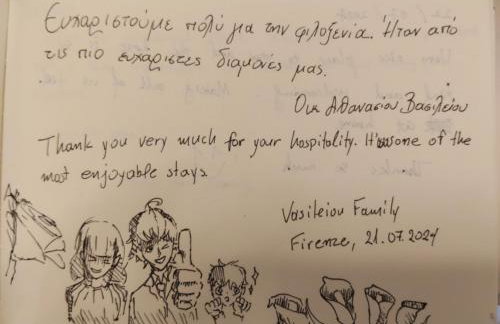 Ευχαριστούμε πολύ για την φιλοξενία. Ήταν από
τις πιο ευχάριστες διαμονές μας.
Οικ Αθανασίου Βασιλείου
Thank you very much for your hospitality. It was one of the
most enjoyable stays.
Vasileiou Family
Firenze, 21.07.2024